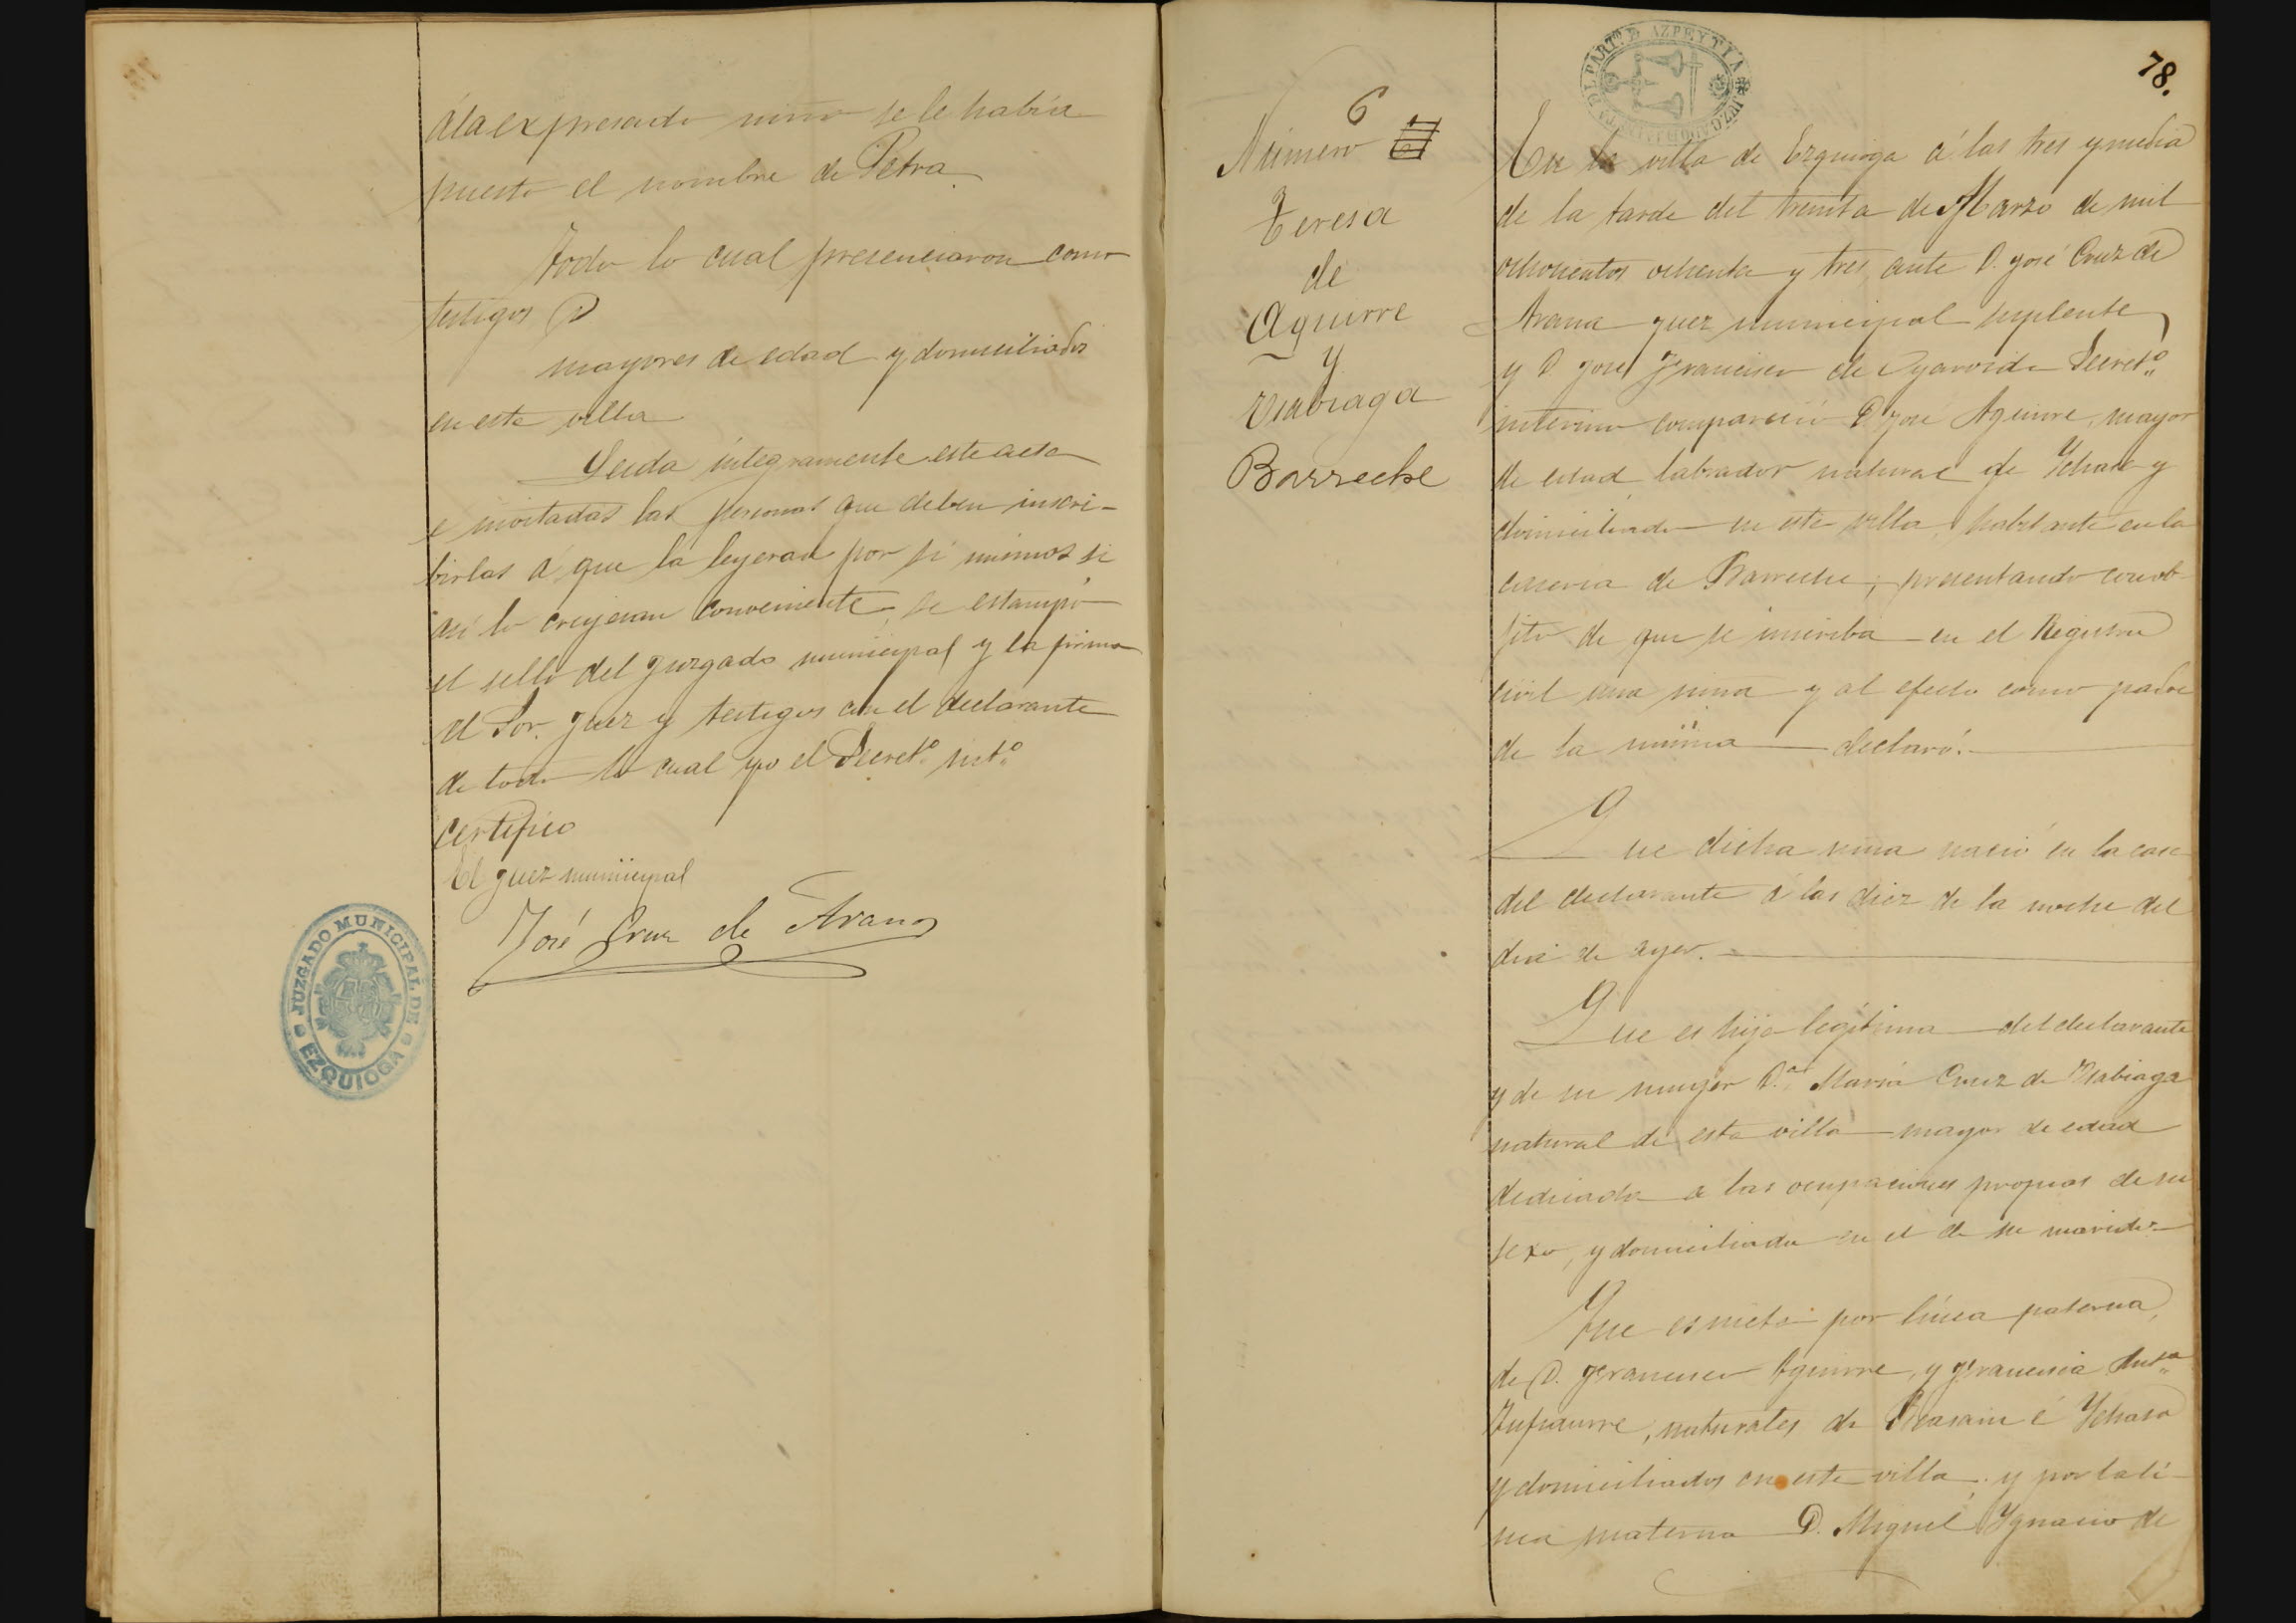 á la expresada niña se le había
puesto el nombre de Petra.
Todo lo cual presenciaron como
testigos D
mayores de edad y domiciliados
en esta villa
Leida íntegramente este acta
e invitadas las personas que deben inscri-
birlas á que la leyeran por si mismos si
así lo creyeran conveniente, se estampó
el sello del Juzgado municipal y la firma
el Sor. Juez y testigos con el declarante
de todo lo cual yo el Secretº intº
certifico
El Juez municipal
José Cruz de Arana
JUZGADO MUNICIPAL DE
EZQUIOGA
78.
AZPEYTIA
6
Número
Teresa
de
Aguirre
y
Usabiaga
Barreche
En la villa de Ezquioga á las tres y media
de la tarde del treinta de Marzo de mil
ochocientos ochenta y tres, ante D. José Cruz de
Arana Juez municipal suplente,
y D. José Francisco de Oyarvide Secretº
interino compareció D. José Aguirre, mayor
de edad, labrador natural de Ychaso y
domiciliado en esta villa, habitante en la
caseria de Barreche; presentando con ob-
jeto de que se inscriba en el Registro
civil una niña y al efecto como padre
de la misma declaró:
Que dicha niña nació en la casa
del declarante á las diez de la noche del
dia de ayer.
Que es hija legítima del declarante
y de su mujer D.ª María Cruz de Usabiaga
natural de esta villa mayor de edad
dedicada a las ocupaciones propias de su
sexo, y domiciliada en el de su marido.
Que es nieta por línea paterna,
de D. Francisco Aguirre, y Francisca Antª
naturales de Beasain é Ychaso
y domiciliados en esta villa; y por la lí-
nea materna D. Miguel Ygnacio de